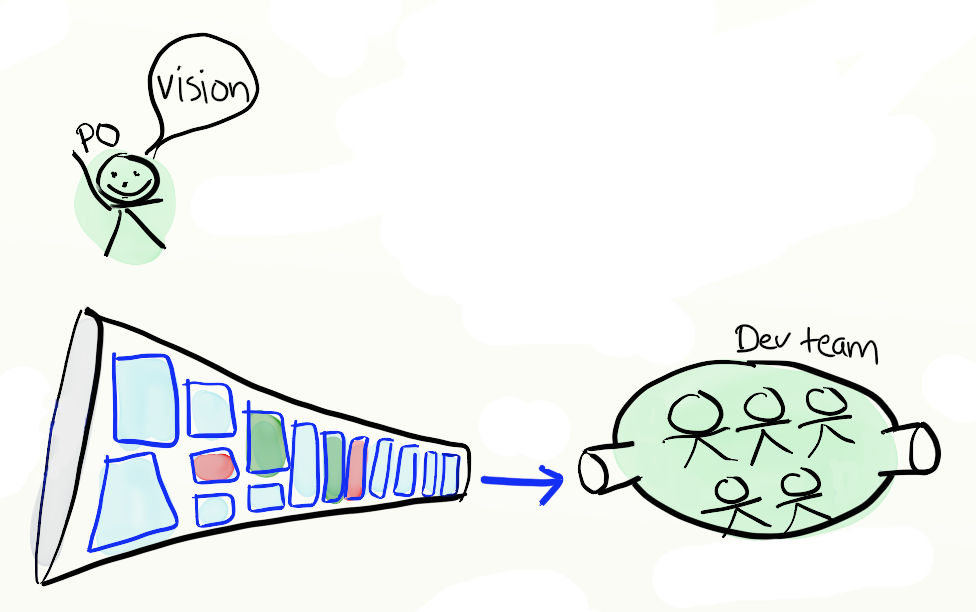 vision
PO
Dev team